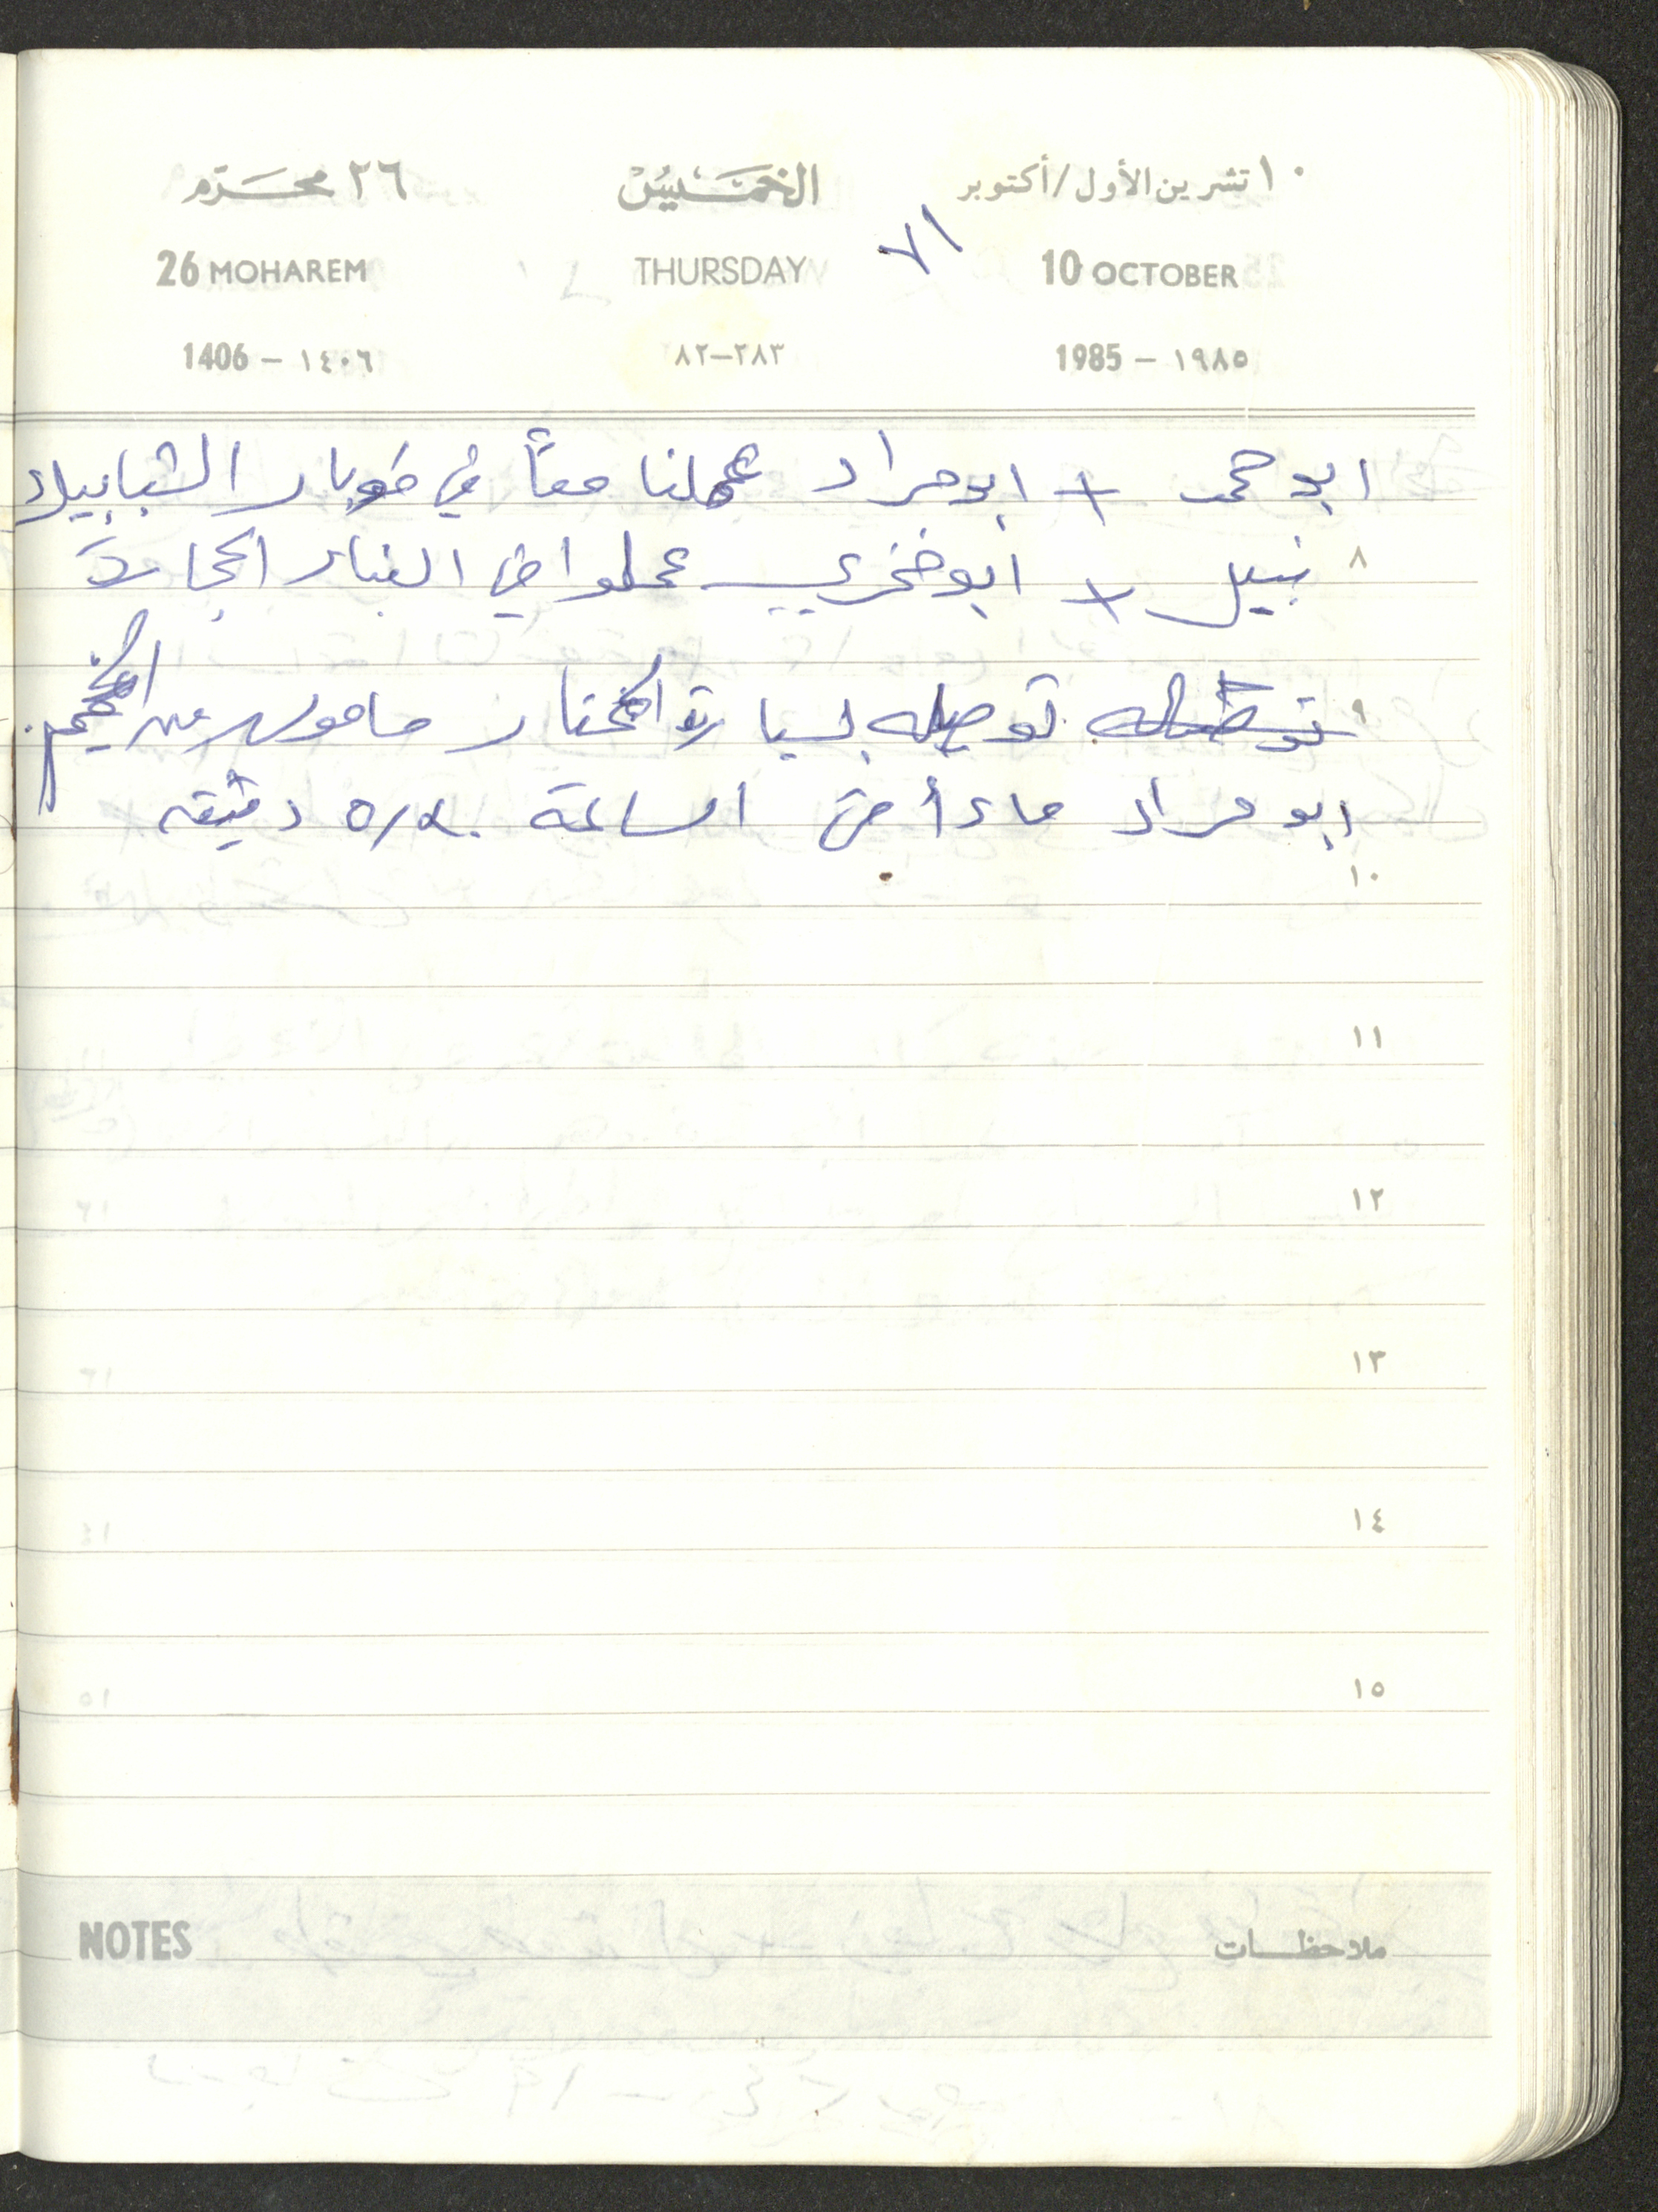 ١٠ تشرين الأول/أكتوبر الخميس ٢٦ محرم
٧١
10 OCTOBER THURSDAY 26 MOHAREM
1985 - ١٩٨٥ ٢٨٣-٨٢ 1406 - ١٤٠٦
ابو حمد + ابو مراد عملنا معاً في غوبار الشبابيك
٨ نبيل + ابو فخري عملوا في الغبار الجارة
٩ توصيله بسيارة المختار مامور من المخيم.
ابو مراد الساعة دقيقه
١٠
١١
١٢
١٣
١٤
١٥
NOTES ملاحظات